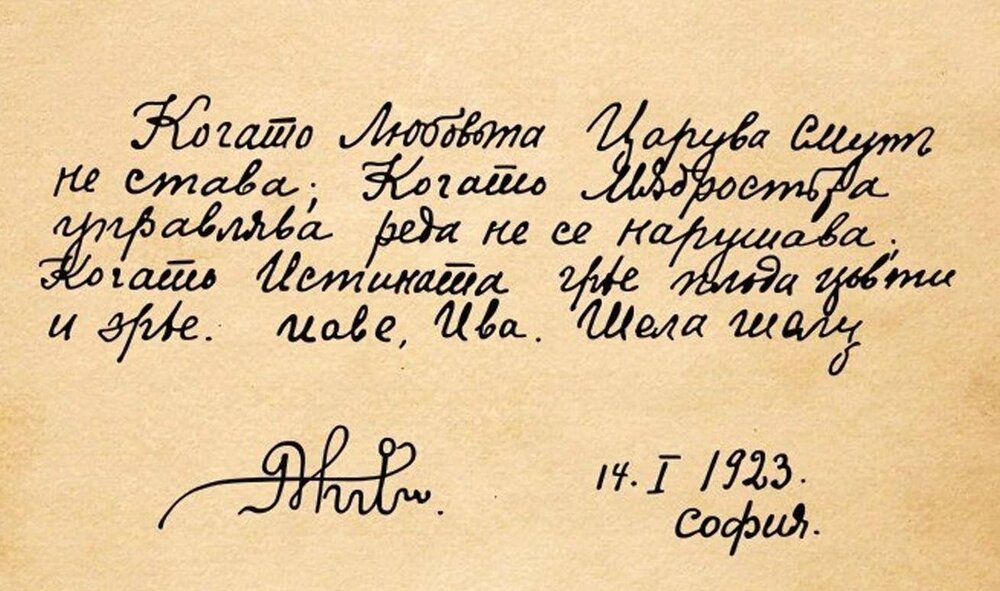 Когато Любовьта Царува смутъ
не става; Когато Мѫдростьта
управлява реда не се нарушава;
Когато Истината грѣе плода цъвти
и зрѣе. иаве, Ива. Шела
14. I 1923.
София.